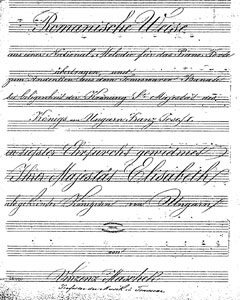 Romanische Weise
aus einer National-Melodie für das Piano Forte
übertragen und
zum Andenken aus dem Temesvarer Banate
bei Gelegenheit der Krönung Sr. Majestät des
Königs von Ungarn Franz Josef I.
in tiefster Ehrfurcht gewidmet
Ihrer Majestät Elisabeth
Königin von Ungarn
von
Vincenz Maschek
Professor der Musik in Temesvar